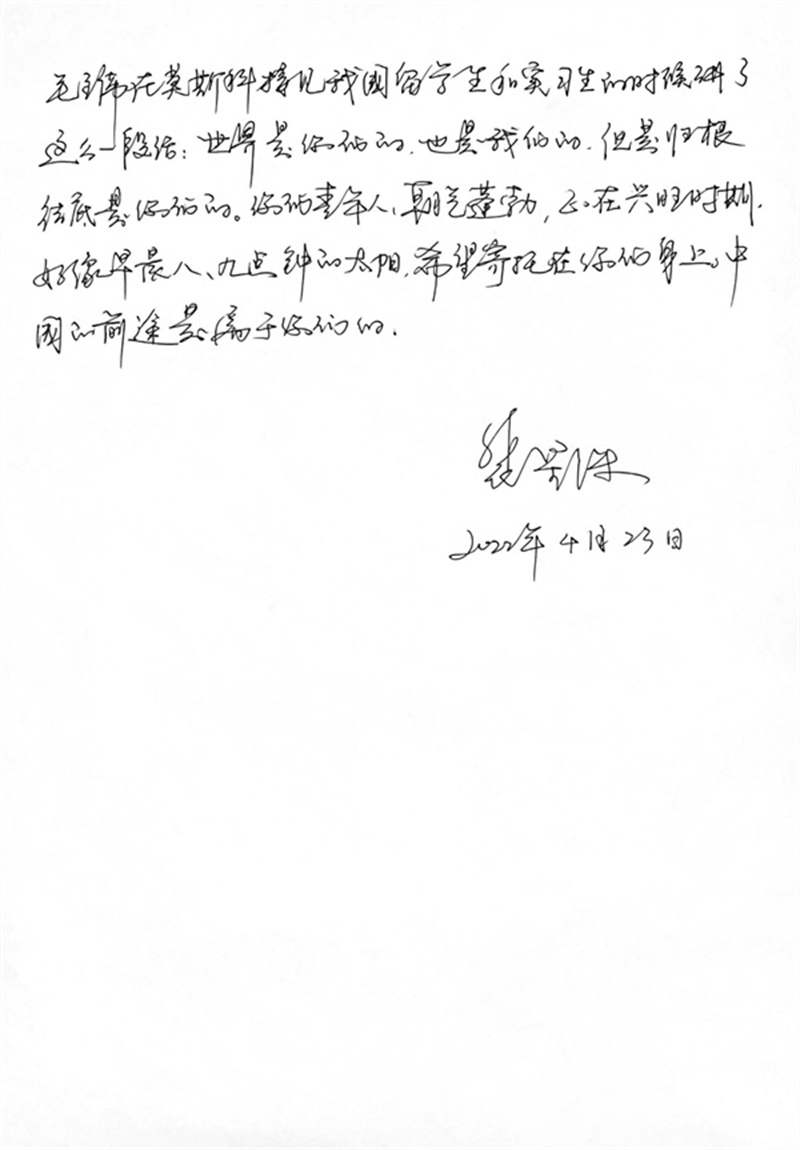 毛主席在莫斯科接见我国留学生和实习生的时候讲了
这么一段话：世界是你们的，也是我们的，但是归根
结底是你们的。你们青年人，朝气蓬勃，正在兴旺时期，
好像早晨八、九点钟的太阳，希望寄托在你们身上。中
国的前途是属于你们的.
2022年4月23日